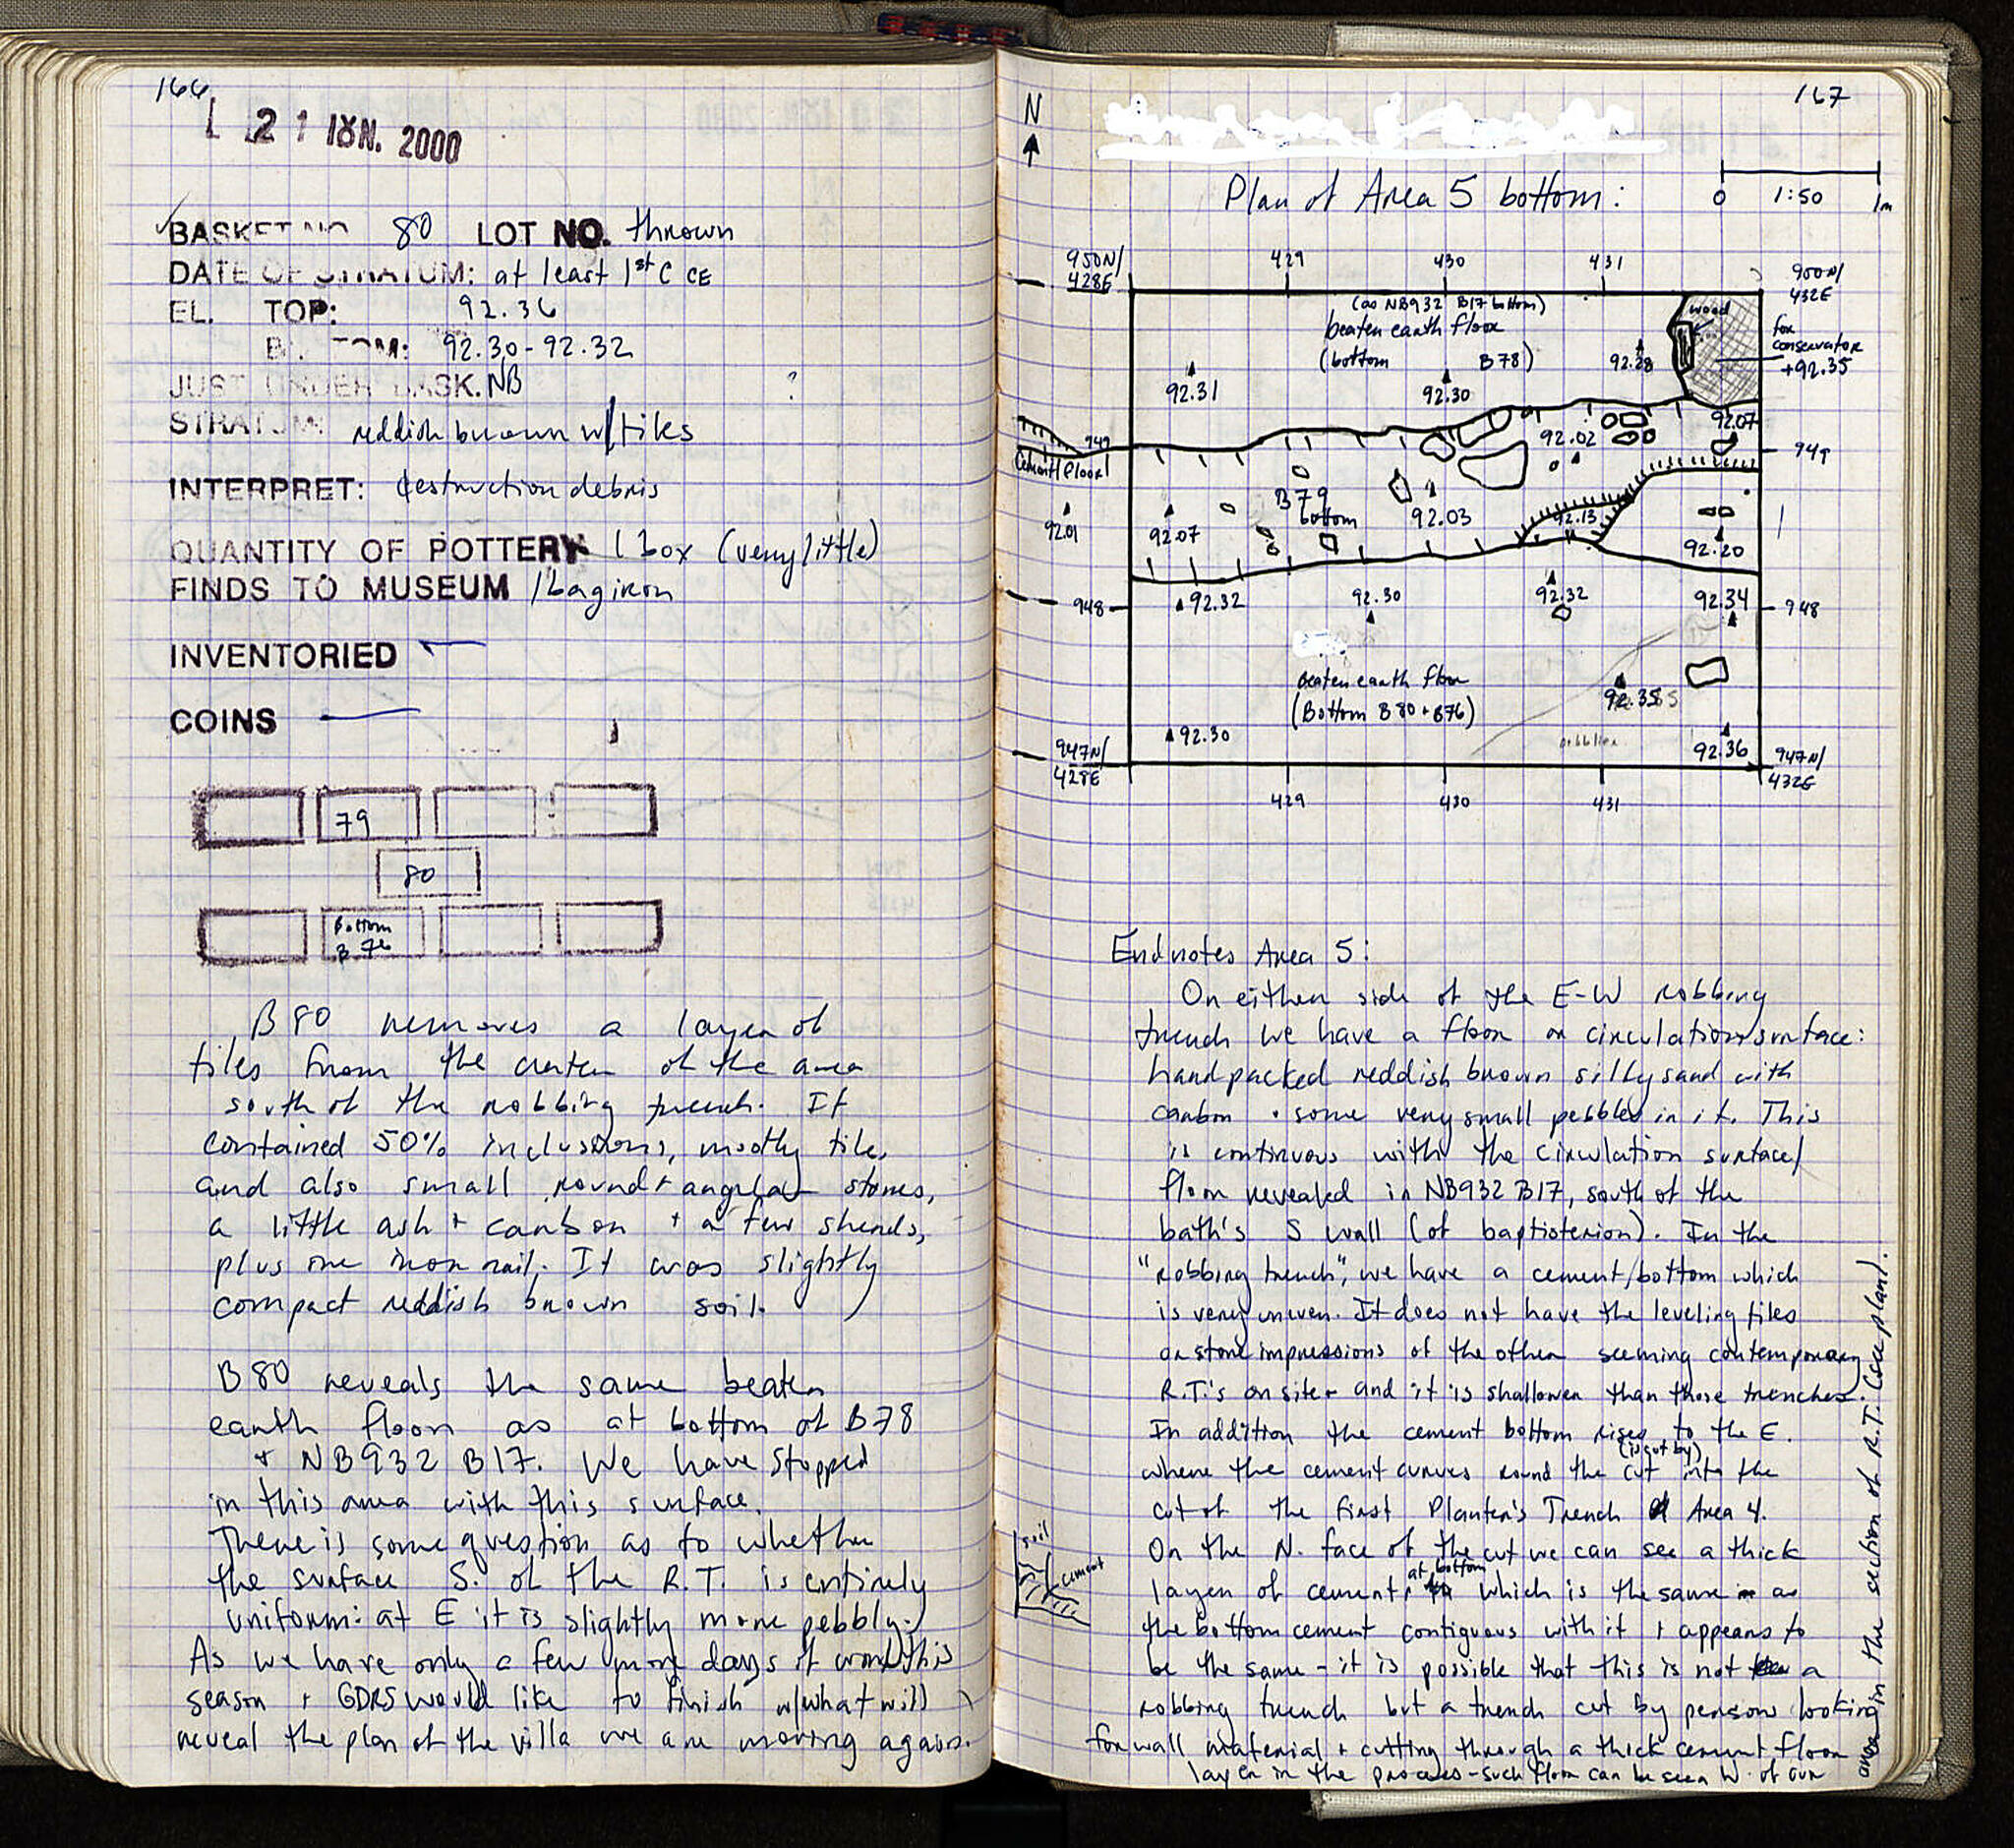 166
21 ΙΟΥΝ. 2000
BASKET NO 80 LOT NO. thrown
DATE OF STRATUM: at least 1st C CE
EL. TOP: 92.36
BOTTOM: 92.30-92.32
JUST UNDER BASK. NB ?
STRATUM: reddish brown w/tiles
INTERPRET: destruction debris
QUANTITY OF POTTERY 1 box (very little)
FINDS TO MUSEUM 1 bag iron
INVENTORIED —
COINS —
79
80
Bottom
B 76
B80 removes a layer of
tiles from the center of the area
south of the robbing trench. It
contained 50% inclusions, mostly tile,
and also small round + angular stones,
a little ash + carbon + a few sherds,
plus one iron nail. It was slightly
compact reddish brown soil.
B80 reveals the same beaten
earth floor as at bottom of B78
+ NB932 B17. We have stopped
in this area with this surface.
There is some question as to whether
the surface S. of the R.T. is entirely
uniform: at E it is slightly more pebbly.
As we have only a few more days of work this
season + GDRS would like to finish w/what will
reveal the plan of the villa we are moving again.
167
N
Plan of Area 5 bottom:
0 1:50 1m
950N/
428E
429 430 431
950N/
432E
(as NB932 B17 bottom)
beaten earth floor
(bottom B78)
wood
for
conservator
+92.35
92.31
92.30
92.28
949
Cement floor
92.02
92.07
949
B79
bottom
92.01
92.07
92.03
92.13
92.20
948
92.32
92.30
92.32
92.34
948
beaten earth floor
(Bottom B80 + B76)
92.35
92.30
pebbles
92.36
947N/
428E
947N/
432E
429 430 431
Endnotes Area 5:
On either side of the E-W robbing
trench we have a floor or circulation surface:
hard packed reddish brown silty sand with
carbon + some very small pebbles in it. This
is continuous with the circulation surface/
floor revealed in NB932 B17, south of the
bath's S wall (of baptisterion). In the
"robbing trench", we have a cement/bottom which
is very uneven. It does not have the leveling tiles
or stone impressions of the other seeming contemporary
R.T.'s on site - and it is shallower than those trenches.
In addition the cement bottom rises to the E.
where the cement curves round the cut (is cut by) into the
cut of the first Planter's Trench of Area 4.
On the N. face of the cut we can see a thick
layer of cement, at bottom which is the same as
the bottom cement contiguous with it + appears to
be the same - it is possible that this is not a
robbing trench but a trench cut by persons looking
for wall material + cutting through a thick cement floor
layer in the process - such floor can be seen W. of our
area in the section of R.T. (see plan).
soil
cement